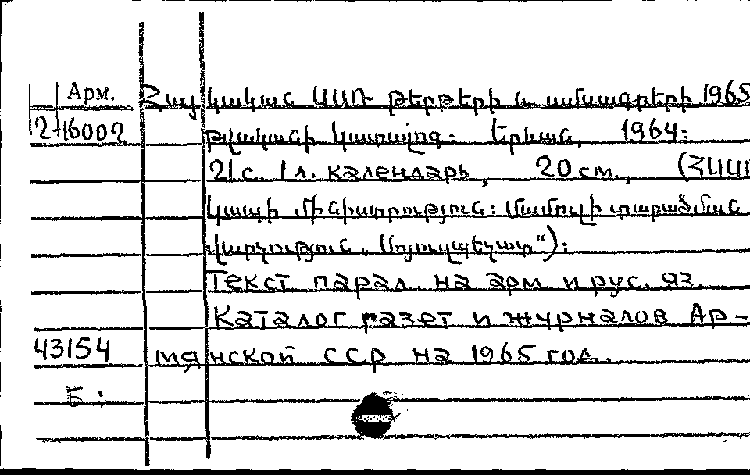 Арм.
Հայկական ՍՍՌ թերթերի և ամսագրերի 1965
2-16002
թվականի կատալոգ: Երևան, 1964:
21 с. 1 л. календарь, 20 см., (ՀՍՍՌ
կապի մինիստրություն: Մամուլի տարածման
վարչություն „Սոյուզպեչատ“):
Текст парал. на арм. и рус. яз.
Каталог газет и журналов Ар-
43154
мянской ССР на 1965 год.